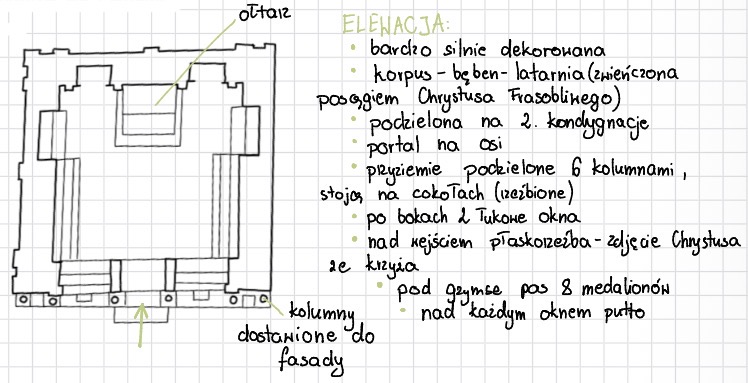 ołtarz
ELEWACJA:
• bardzo silnie dekorowana
• korpus - bęben - latarnia (zwieńczona
posągiem Chrystusa Frasobliwego)
• podzielona na 2. kondygnacje
• portal na osi
• przyziemie podzielone 6 kolumnami,
stoją na cokołach (rzeźbione)
• po bokach 2 łukowe okna
• nad wejściem płaskorzeźba - zdjęcie Chrystusa
ze krzyża
• pod gzymse pas 8 medalionów
• nad każdym oknem putto
kolumny
dostawione do
fasady